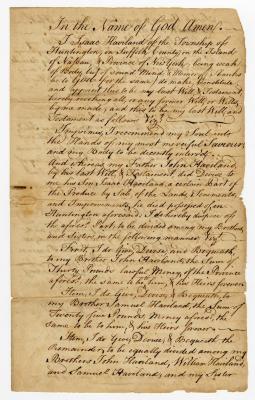 In the Name of God Amen.
I Isaac Haviland of the Township of
Huntington, in Suffolk County, in the Island
of Nassau, & Province of New York; being weak
of Body but of sound Mind & Memory, (thanks
be to God for the same) do make, constitute,
and appoint this to be my last Will & Testament,
hereby revoking all & every former Will, or Wills
by me made, and this to be my last Will, and
Testament as follows Viz.t
Imprimis, I recommend my Soul into
the Hands of my most merciful Saviour,
and my Body to be decently interr'd.
And whereas my Father John Haviland,
by his last Will, & Testament did Devise to
me his Son, Isaac Haviland, a certain Part of
the Products, & Sale of the Lands & Tenements,
and Improvements, he died possessed of in
Huntington aforesaid; I do hereby dispose of
the aforesd. Part to be divided among my Brothers,
and Sisters, in the following manner Viz.t
First, I do Give, Devise, and Bequeath to
my Brother John Haviland, the Sum of
Thirty Pounds lawful Money of the Province
aforesd. the same to be to him, & his Heirs forever.
Item, I do Give, Devise, & Bequeath, to
my Brother Samuel Haviland, the Sum of
Twenty five Pounds Money aforesd. the
Same to be to him, & his Heirs forever.
Item, I do Give, Devise, & Bequeath the
Remainder, to be equally divided among my
Brothers John Haviland, William Haviland,
and Samuel Haviland, and my Sister